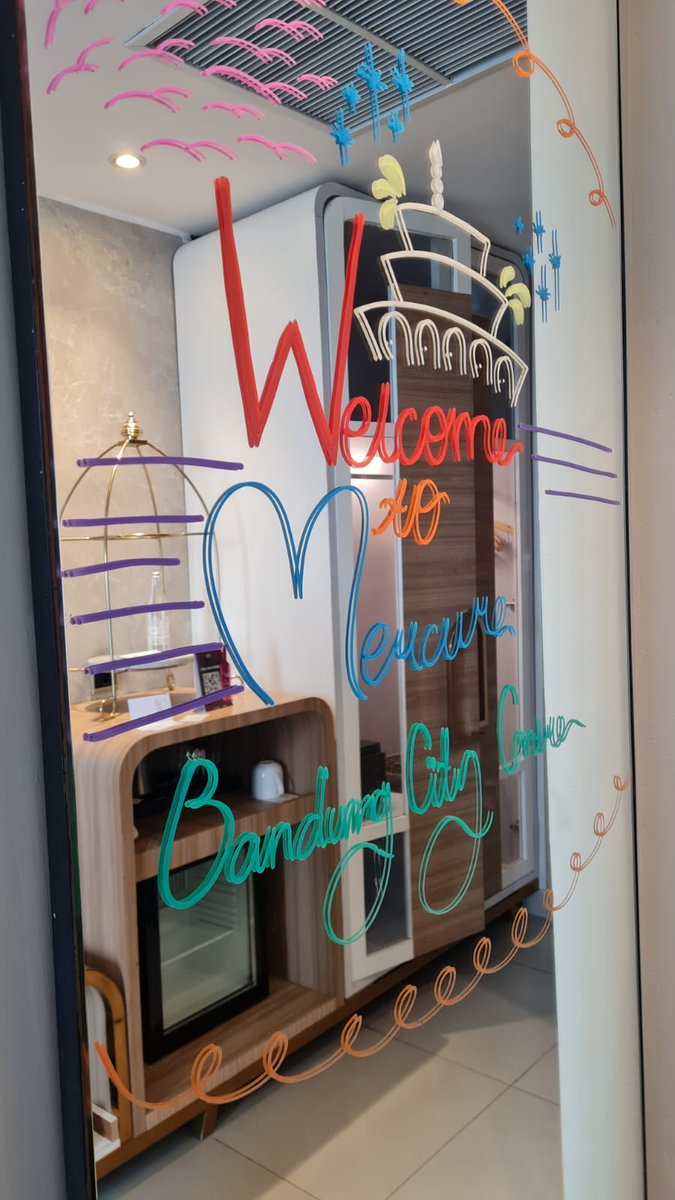 Welcome
to
Mercure
Bandung City Centre